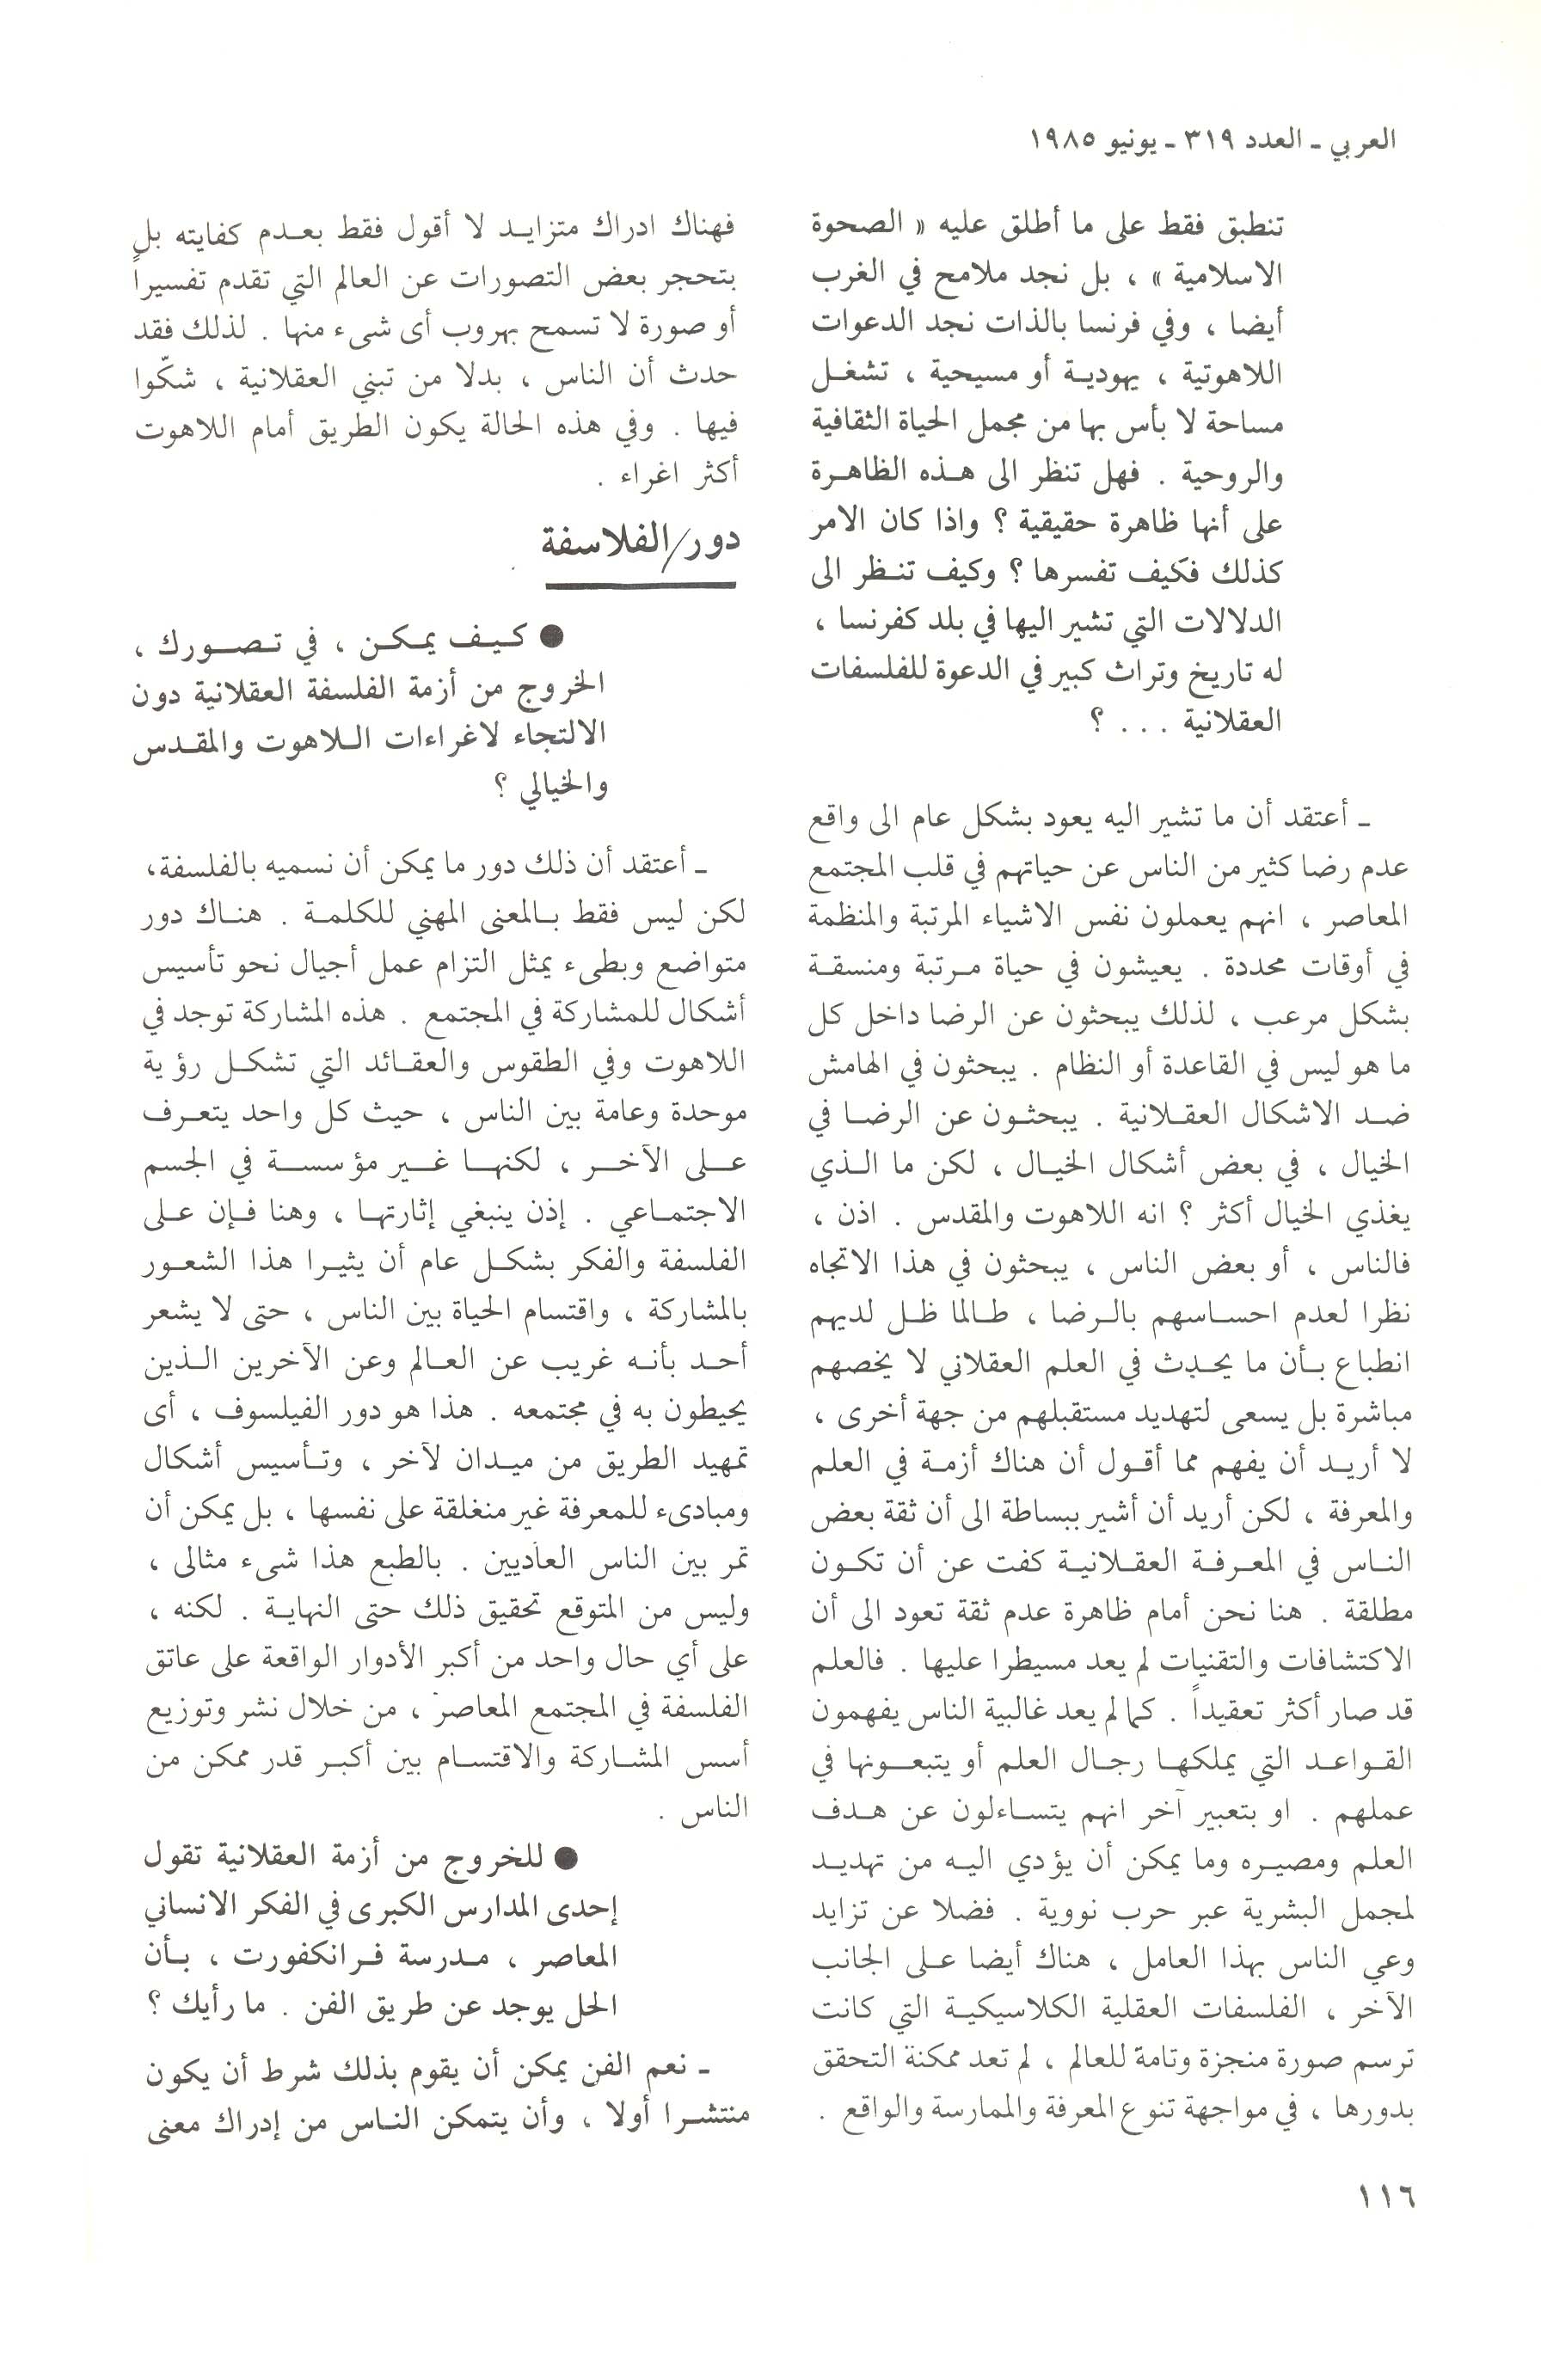 العربي ـ العدد ٣١٩ ـ يونيو ١٩٨٥
تنطبق فقط على ما أطلق عليه « الصحوة
الاسلامية » ، بل نجد ملامح في الغرب
أيضا ، وفي فرنسا بالذات نجد الدعوات
اللاهوتية ، يهودية أو مسيحية ، تشغل
مساحة لا بأس بها من مجمل الحياة الثقافية
والروحية . فهل تنظر الى هذه الظاهرة
على أنها ظاهرة حقيقية ؟ واذا كان الامر
كذلك فكيف تفسرها ؟ وكيف تنظر الى
الدلالات التي تشير اليها في بلد كفرنسا ،
له تاريخ وتراث كبير في الدعوة للفلسفات
العقلانية . . . ؟
ـ أعتقد أن ما تشير اليه يعود بشكل عام الى واقع
عدم رضا كثير من الناس عن حياتهم في قلب المجتمع
المعاصر ، انهم يعملون نفس الاشياء المرتبة والمنظمة
في أوقات محددة . يعيشون في حياة مرتبة ومنسقة
بشكل مرعب ، لذلك يبحثون عن الرضا داخل كل
ما هو ليس في القاعدة أو النظام . يبحثون في الهامش
ضد الاشكال العقلانية . يبحثون عن الرضا في
الخيال ، في بعض أشكال الخيال ، لكن ما الذي
يغذي الخيال أكثر ؟ انه اللاهوت والمقدس . اذن ،
فالناس ، أو بعض الناس ، يبحثون في هذا الاتجاه
نظرا لعدم احساسهم بالرضا ، طالما ظل لديهم
انطباع بأن ما يحدث في العلم العقلاني لا يخصهم
مباشرة بل يسعى لتهديد مستقبلهم من جهة أخرى ،
لا أريد أن يفهم مما أقول أن هناك أزمة في العلم
والمعرفة ، لكن أريد أن أشير ببساطة الى أن ثقة بعض
الناس في المعرفة العقلانية كفت عن أن تكون
مطلقة . هنا نحن أمام ظاهرة عدم ثقة تعود الى أن
الاكتشافات والتقنيات لم يعد مسيطرا عليها . فالعلم
قد صار أكثر تعقيداً . كما لم يعد غالبية الناس يفهمون
القواعد التي يملكها رجال العلم أو يتبعونها في
عملهم . او بتعبير آخر انهم يتساءلون عن هدف
العلم ومصيره وما يمكن أن يؤدي اليه من تهديد
لمجمل البشرية عبر حرب نووية . فضلا عن تزايد
وعي الناس بهذا العامل ، هناك أيضا على الجانب
الآخر ، الفلسفات العقلية الكلاسيكية التي كانت
ترسم صورة منجزة وتامة للعالم ، لم تعد ممكنة التحقق
بدورها ، في مواجهة تنوع المعرفة والممارسة والواقع .
فهناك ادراك متزايد لا أقول فقط بعدم كفايته بل
بتحجر بعض التصورات عن العالم التي تقدم تفسيراً
أو صورة لا تسمح بهروب أى شىء منها . لذلك فقد
حدث أن الناس ، بدلا من تبني العقلانية ، شكّوا
فيها . وفي هذه الحالة يكون الطريق أمام اللاهوت
أكثر اغراء .
دور/الفلاسفة
● كيف يمكن ، في تصورك ،
الخروج من أزمة الفلسفة العقلانية دون
الالتجاء لاغراءات اللاهوت والمقدس
والخيالي ؟
ـ أعتقد أن ذلك دور ما يمكن أن نسميه بالفلسفة،
لكن ليس فقط بالمعنى المهني للكلمة . هناك دور
متواضع وبطىء يمثل التزام عمل أجيال نحو تأسيس
أشكال للمشاركة في المجتمع . هذه المشاركة توجد في
اللاهوت وفي الطقوس والعقائد التي تشكل رؤية
موحدة وعامة بين الناس ، حيث كل واحد يتعرف
على الآخر ، لكنها غير مؤسسة في الجسم
الاجتماعي . إذن ينبغي إثارتها ، وهنا فإن على
الفلسفة والفكر بشكل عام أن يثيرا هذا الشعور
بالمشاركة ، واقتسام الحياة بين الناس ، حتى لا يشعر
أحد بأنه غريب عن العالم وعن الآخرين الذين
يحيطون به في مجتمعه . هذا هو دور الفيلسوف ، أى
تمهيد الطريق من ميدان لآخر ، وتأسيس أشكال
ومبادىء للمعرفة غير منغلقة على نفسها ، بل يمكن أن
تمر بين الناس العاديين . بالطبع هذا شىء مثالى ،
وليس من المتوقع تحقيق ذلك حتى النهاية . لكنه ،
على أي حال واحد من أكبر الأدوار الواقعة على عاتق
الفلسفة في المجتمع المعاصر ، من خلال نشر وتوزيع
أسس المشاركة والاقتسام بين أكبر قدر ممكن من
الناس .
● للخروج من أزمة العقلانية تقول
إحدى المدارس الكبرى في الفكر الانساني
المعاصر ، مدرسة فرانكفورت ، بأن
الحل يوجد عن طريق الفن . ما رأيك ؟
ـ نعم الفن يمكن أن يقوم بذلك شرط أن يكون
منتشرا أولا ، وأن يتمكن الناس من إدراك معنى
١١٦